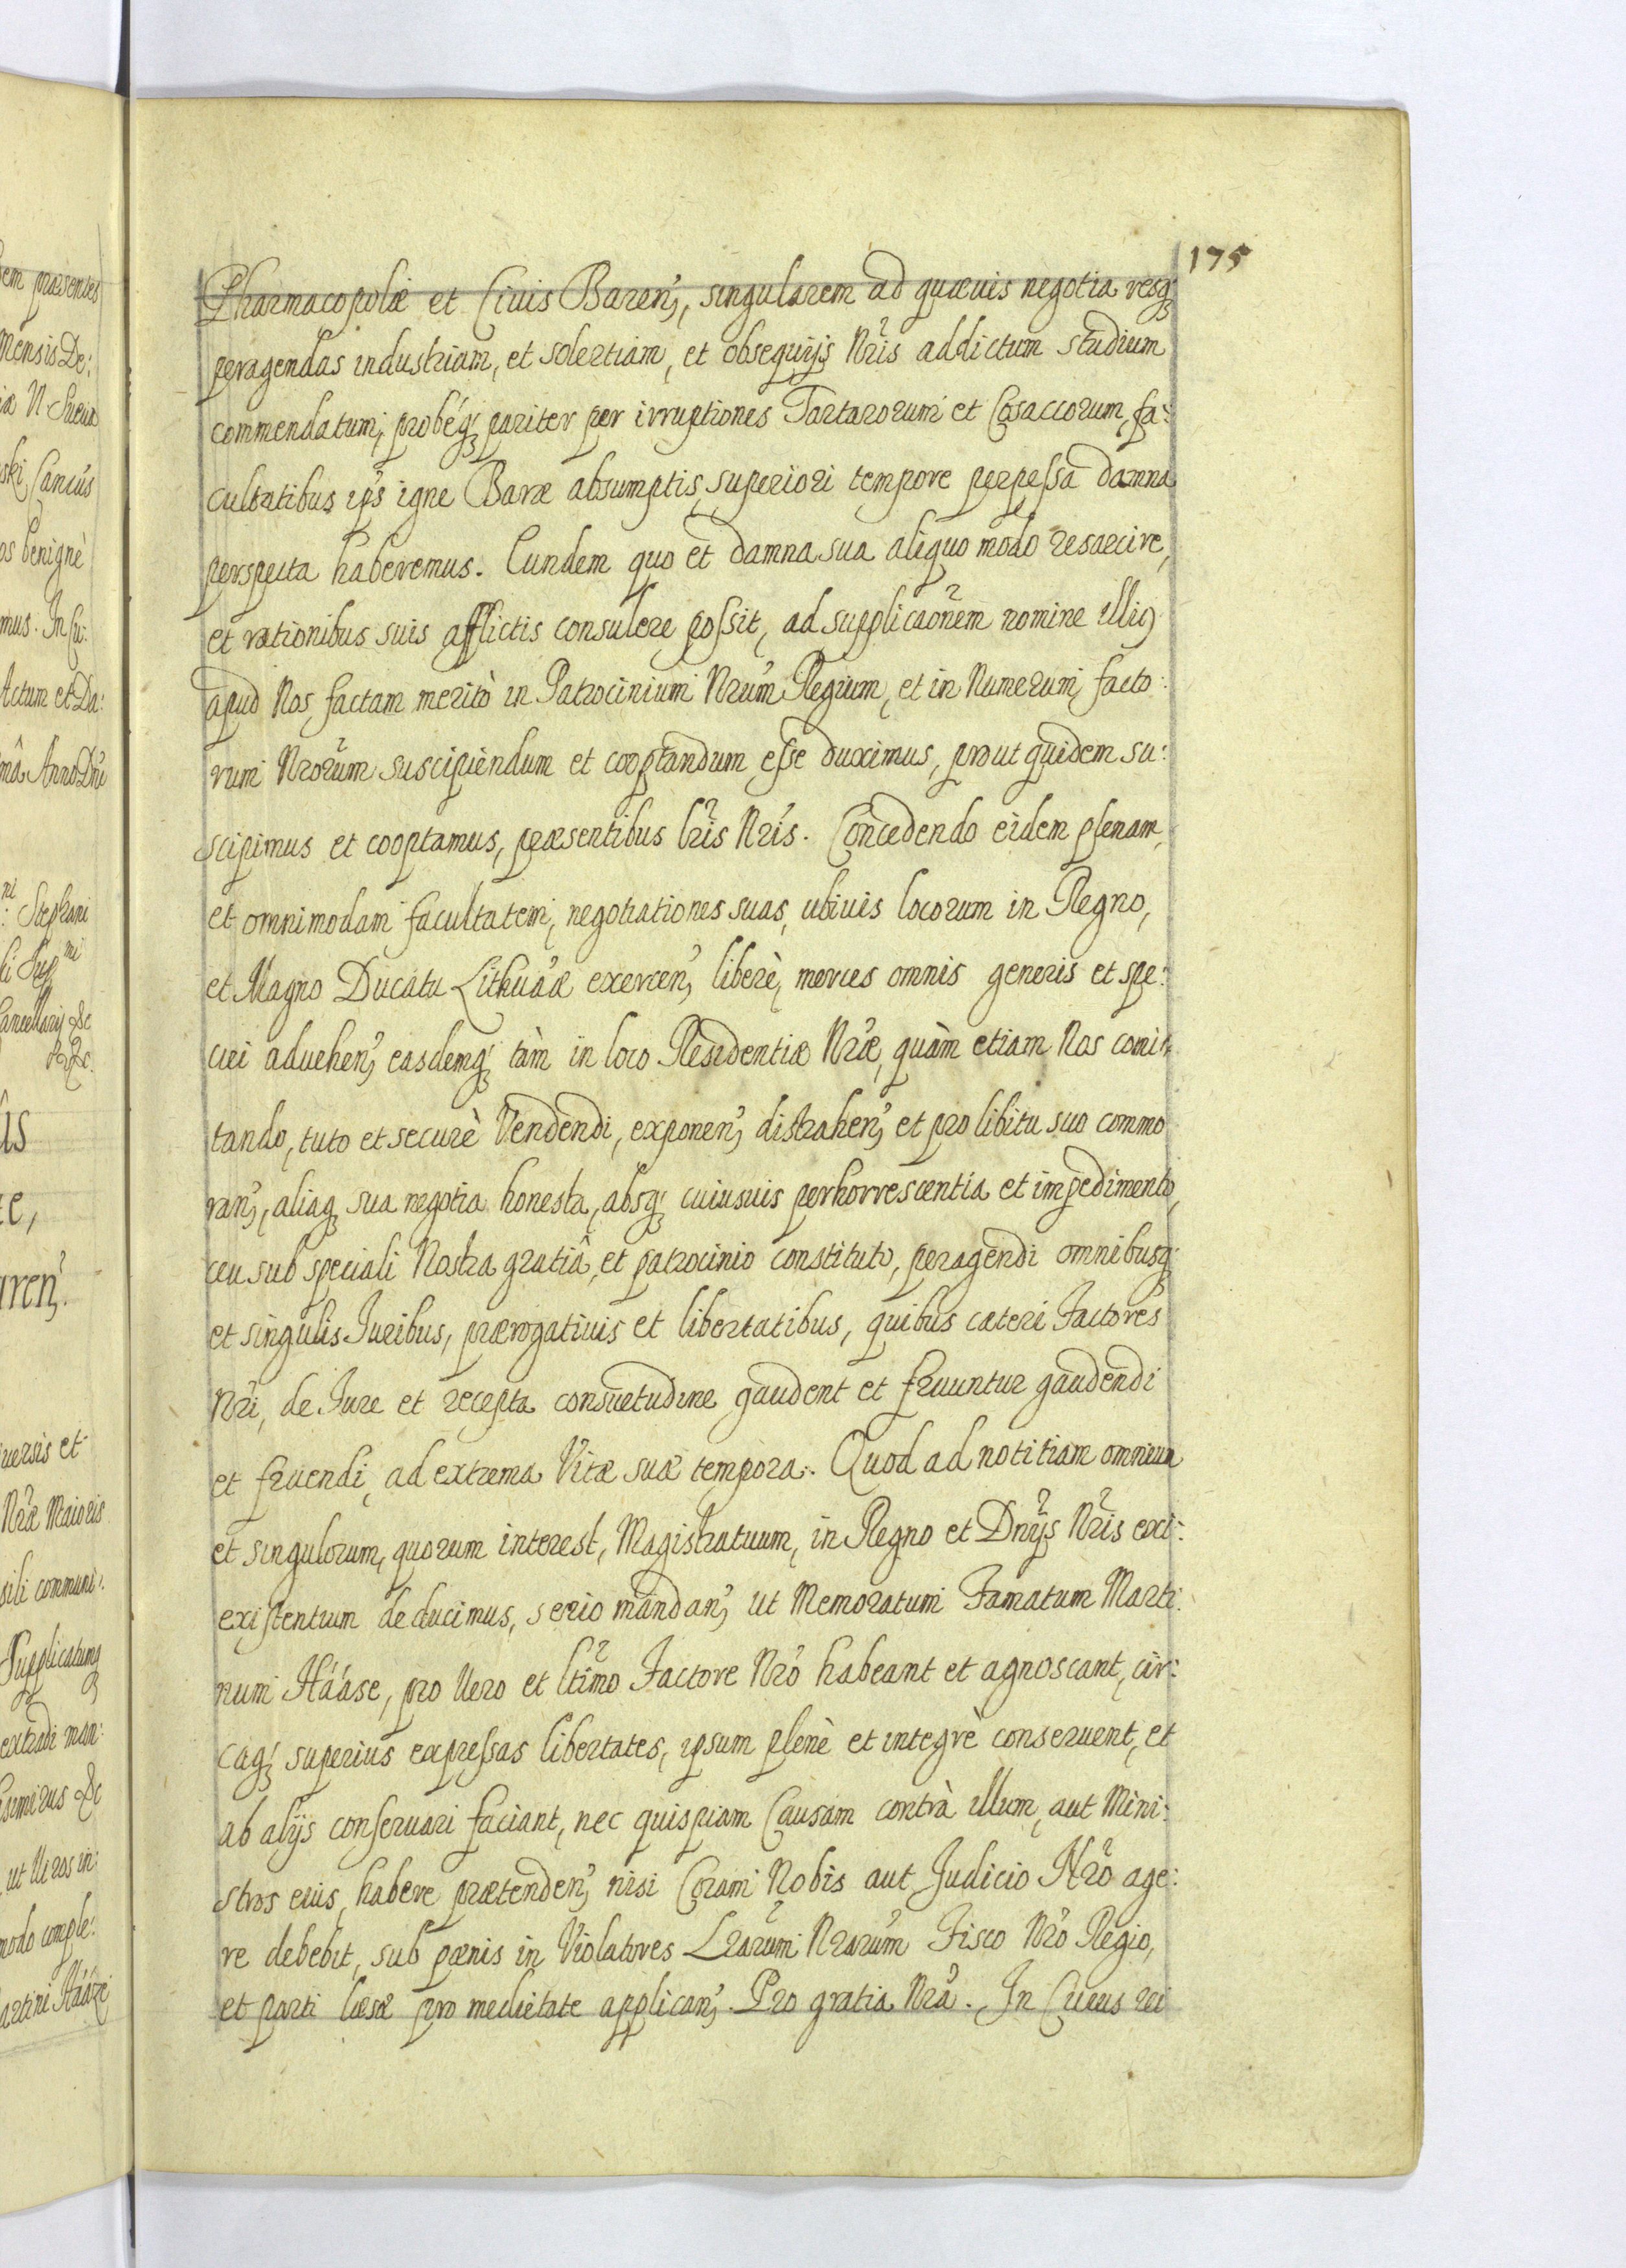 175
Pharmacopolæ et Ciuis Baren̛, singularem ad quæuis negotia resq́;
peragendas industriam, et solertiam, et obsequijs Nr̃is addictum studium
commendatum, probéq́; pariter per irruptiones Tartarorum et Cosaccorum, fa:
cultatibus ip̃s igne Baræ absumptis, superiori tempore perpessa damna
perspecta haberemus. Eundem quo et damna sua aliquo modo resarcire,
et rationibus suis afflictis consulere possit, ad supplicaõnem nomine illiꝯ
apud Nos factam meritò in Patrocinium Nrũm Regium, et in Numerum facto:
rum Nrõrum suscipiendum et cooptandum esse duximus, prout quidem su:
scipimus et cooptamus, præsentibus lr̃is Nr̃is. Concedendo eidem plenam,
et omnimodam facultatem, negotiationes suas, ubiuis locorum in Regno,
et Magno Ducatu Lithuãæ exercen̛, liberè, merces omnis generis et spe:
ciei aduehen̛, easdemq́; tàm in loco Residentiæ Nr̃æ, quàm etiam Nos comi:
tando, tuto et securè Vendendi, exponen̛, distrahen̛, et pro libitu suo commo
ran̛, aliaq́; sua negotia honesta, absq́; cuiusuis perhorrescentia et impedimento,
ceu sub speciali Nostra gratiâ, et patrocinio constituto, peragendi omnibusq́;
et singulis Juribus, prærogatiuis et libertatibus, quibus cæteri Factores
Nr̃i, de Jure et recepta consuetudine gaudent et fruuntur gaudendi
et fruendi, ad extrema Vitæ suæ tempora. Quod ad notitiam omnium
et singulorum, quorum interest, Magistratuum, in Regno et Dnĩjs Nr̃is exi:
existentium deducimus, serio mandan̛, ut Memoratum Famatum Marti:
num Háàse, pro Vero et ltĩmo Factore Nrõ habeant et agnoscant, cir:
caq́; superius expressas libertates, ipsum plenè et integrè conseruent, et
ab alijs conseruari faciant, nec quispiam Causam contrà illum, aut Mini:
stros eius, habere prætenden̛, nisi Coram Nobis aut Judicio Nrõ age:
re debebit, sub pœnis in Violatores Lrãrum Nrãrum Fisco Nrõ Regio,
et parti læsæ pro medietate applican̛. Pro gratia Nrã. In Cuius rei